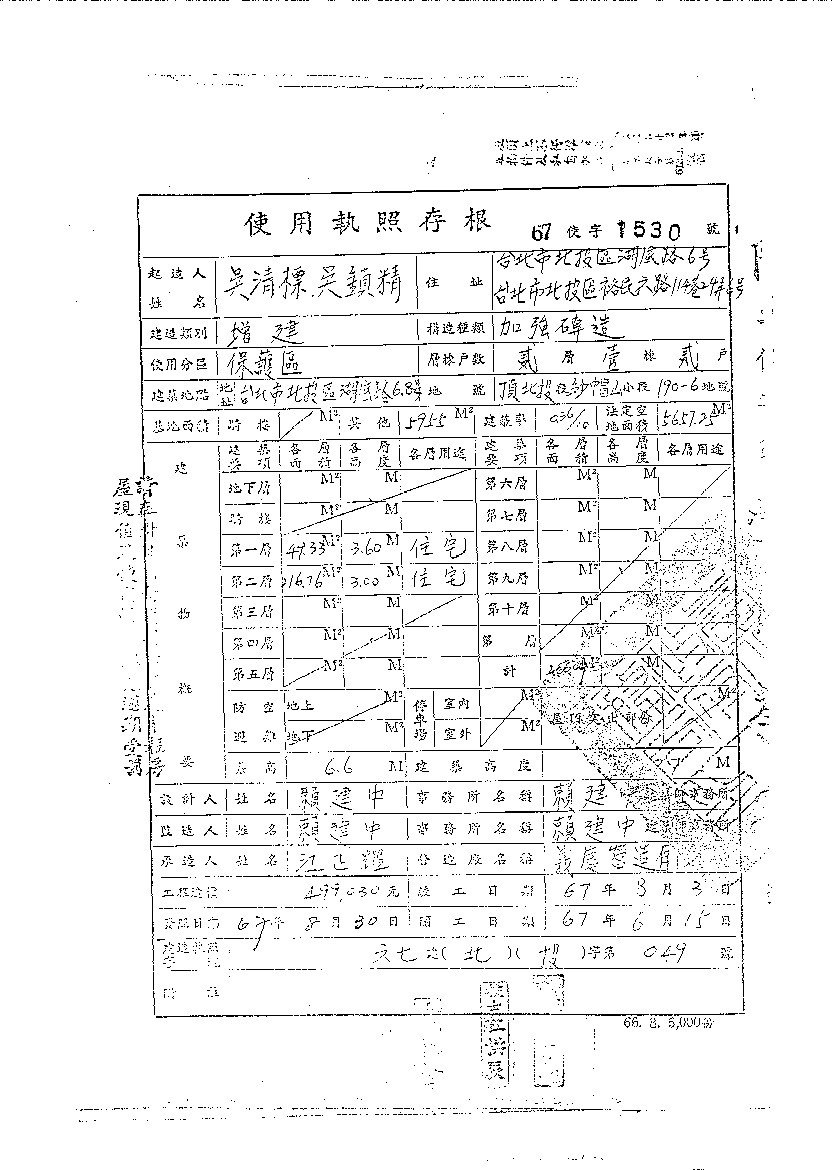 使用執照存根 67 使字 1530 號
起造人姓名 吳清標 吳鎮精 住址 台北市北投區湖底路6號
台北市北投區裕民六路114巷24弄6號
建造類別 增建 構造種類 加強磚造
使用分區 保護區 層棟戶數 貳層壹棟貳戶
建築地點 地址 台北市北投區湖底路6.8號 地號 頂北投段紗帽山小段190-6地號
基地面積 騎樓 M² 其他 5955 M² 建蔽率 0.36/10 法定空地面積 5657.25 M²
建築要項 各層面積 各層高度 各層用途 建築要項 各層面積 各層高度 各層用途
地下層 M² M 第六層 M² M
騎樓 M² M 第七層 M² M
第一層 M² 3.60 M 住宅 第八層 M² M
第二層 216.76 M² 3.00 M 住宅 第九層 M² M
第三層 M² M 第十層 M² M
第四層 M² M 第 層 M² M
第五層 M² M 計 M² M
建築物概要
防空避難 地上 M² 停車場 室內 M² 屋頂突出部份 M²
地下 M² 室外 M²
簷高 6.6 M 建築高度 M
設計人 姓名 賴建中 事務所名稱 賴建 師事務所
監造人 姓名 賴建中 事務所名稱 賴建中
承造人 姓名 江 營造廠名稱 營造
工程造價 499,030元 竣工日期 67年8月3日
發照日期 67年8月30日 開工日期 67年6月15日
建造執照 六七 (北)(投)字第 049 號
附註
66. 8. 5,000份